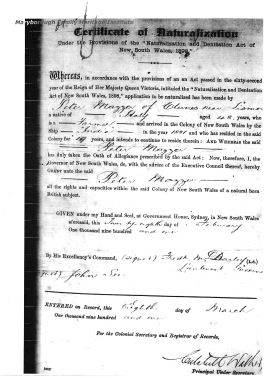 Maryborough Family Heritage Institute
Certificate of Naturalization
Under the Provisions of the "Naturalization and Denization Act of
New South Wales, 1898."
Whereas, in accordance with the provisions of an Act passed in the sixty-second
year of the Reign of Her Majesty Queen Victoria, intituled the "Naturalization and Denization
Act of New South Wales, 1898," application to be naturalized has been made by
Peter Mazzer of Clunes near Lismore
a native of Italy aged 48 years, who
is a Farmer and arrived in the Colony of New South Wales by the
Ship "India" in the year 1881 and who has resided in the said
Colony for years, and intends to continue to reside therein: And Whereas the said
Peter Mazzer
has duly taken the Oath of Allegiance prescribed by the said Act: Now, therefore, I, the
Governor of New South Wales, do, with the advice of the Executive Council thereof, hereby
Grant unto the said
Peter Mazzer
all the rights and capacities within the said Colony of New South Wales of a natural-born
British subject.
GIVEN under my Hand and Seal, at Government House, Sydney, in New South Wales
aforesaid, this day of February
One thousand nine hundred and
By His Excellency's Command, (signed) Fredk. M. Darley
Lieutenant Governor
John See
ENTERED on Record, this Eighth day of March
One thousand nine hundred and
For the Colonial Secretary and Registrar of Records,
Critchett Walker
Principal Under Secretary